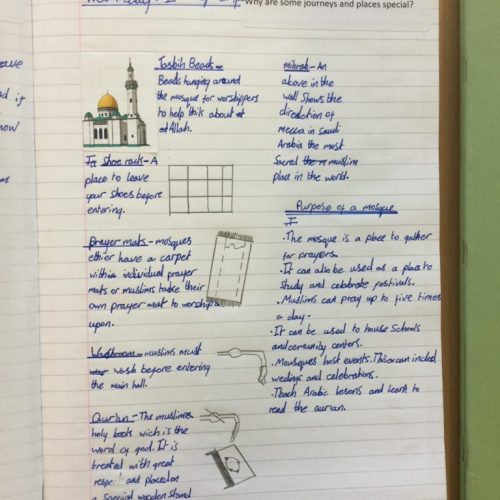 Why are some journeys and places special?
Tasbih Beads -
Beads hanging around
the mosque for worshippers
to help
at Allah.
shoe rack - A
place to leave
your shoes before
entering.
prayer mats - mosques
ethier have a carpet
within individual prayer
mats or muslims take their
own prayer mat to worship
upon.
Washroom - muslims must
wash before entering
the main hall.
Qur'an - The muslims
holy book wich is the
word of god. It is
treated with great
respect and placed on
a special wooden stand
mihrab - An
alcove in the
wall shows the
direction of
mecca in saudi
Arabia the most
sacred muslim
place in the world.
Purpose of a mosque
. The mosque is a place to gather
for prayers.
. It can also be used as a place to
study and celebrate festivals.
. Muslims can pray up to five times
a day.
. It can be used to house schools
and comunity centers.
. Mousques host events. This can incled
wedings and celebrations.
. Teach Arabic lesons and learn to
read the quran.